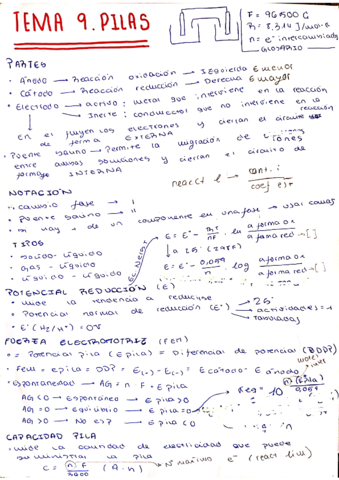 TEMA 9. PILAS
F = 96500 C
R = 8,314 J/mol·K
n = e⁻ intercambiados
GLOSARIO
PARTES
· Ánodo → Reacción oxidación → Izquierda E menor
· Cátodo → Reacción reducción → Derecha E mayor
· Electrodo → activo: metal que interviene en la reacción
→ Inerte: conductor que no interviene en la reacción
En el fluyen los electrones y cierran el circuito
de forma EXTERNA
· Puente salino → Permite la migración de iones
entre ambas soluciones y cierran el circuito de
forma INTERNA
react l → cant. i
coef e)t
NOTACIÓN
· cambio fase → |
· Puente salino → ||
· Si hay + de un componente en una fase → usar comas
TIPOS
· Sólido - Líquido
· Gas - Líquido
· Líquido - Líquido
Ec. Nernst
E = E° - RT/nF Ln a forma ox / a forma red → [ ]
a 25° (298K)
E = E° - 0,059/n log a forma ox / a forma red → [ ]
POTENCIAL REDUCCIÓN (E)
· Mide la tendencia a reducirse
· Potencial normal de reducción (E°) → 25°
→ actividades = 1
· E° (H2/H+) = 0V
FUERZA ELECTROMOTRIZ (Fem)
· = Potencial pila (E pila) = Diferencia de potencial (DDP)
· Fem = E pila = DDP = E(+) - E(-) = E cátodo - E ánodo
· Espontaneidad → ΔG = n · F · E pila
ΔG < 0 → espontáneo → E pila > 0
ΔG = 0 → equilibrio → E pila = 0 → Keq = 10
ΔG > 0 → No esp → E pila < 0
CAPACIDAD PILA
· Mide la cantidad de electricidad que puede
suministrar la pila
C = n F / 3600 (A·h) → Nº máximo e⁻ (react lim)